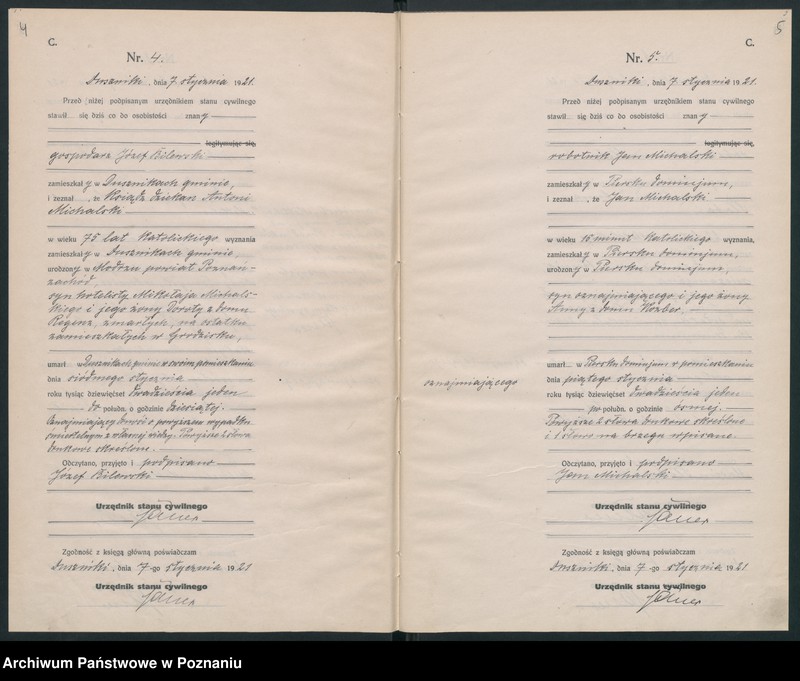 4
C.
Nr. 4.
Duszniki, dnia 7 stycznia 1921.
Przed niżej podpisanym urzędnikiem stanu cywilnego
stawił się dziś co do osobistości znany
legitymując się,
gospodarz Józef Bilewski
zamieszkały w Dusznikach gminie,
i zeznał, że Ksiądz dziekan Antoni
Michalski
w wieku 75 lat katolickiego wyznania
zamieszkały w Dusznikach gminie
urodzony w Modrzu powiat Poznań-
zachód
syn hotelisty Mikołaja Michals-
kiego i jego żony Doroty z domu
zmarłych, na ostatku
zamieszkałych w Grodzisku,
umarł w Dusznikach gminie w swoim pomieszkaniu
dnia siódmego stycznia
roku tysiąc dziewięćset dwadzieścia jeden
do połudn. o godzinie dziesiątej.
Oznajmiający donosi o powyższym wypadku
śmiertelnym z własnej wiedzy. Powyższe 2 słowa
drukowe skreślone.
Odczytano, przyjęto i podpisano
Józef Bilewski
Urzędnik stanu cywilnego
Zgodność z księgą główną poświadczam
Duszniki, dnia 7-go stycznia 1921
Urzędnik stanu cywilnego
5
C.
Nr. 5.
Duszniki, dnia 7 stycznia 1921.
Przed niżej podpisanym urzędnikiem stanu cywilnego
stawił się dziś co do osobistości znany
legitymując się,
robotnik Jan Michalski
zamieszkały w dominjum,
i zeznał, że Jan Michalski
w wieku 15 minut katolickiego wyznania,
zamieszkały w dominjum,
urodzony w dominjum,
syn oznajmiającego i jego żony
Anny z domu
umarł w dominjum w pomieszkaniu
oznajmiającego
dnia piątego stycznia
roku tysiąc dziewięćset dwadzieścia jeden
po połudn. o godzinie ósmej.
Powyższe 2 słowa drukowe skreślone
i 1 słowo na brzegu wpisane.
Odczytano, przyjęto i podpisano
Jan Michalski
Urzędnik stanu cywilnego
Zgodność z księgą główną poświadczam
Duszniki, dnia 7-go stycznia 1921
Urzędnik stanu cywilnego
Archiwum Państwowe w Poznaniu